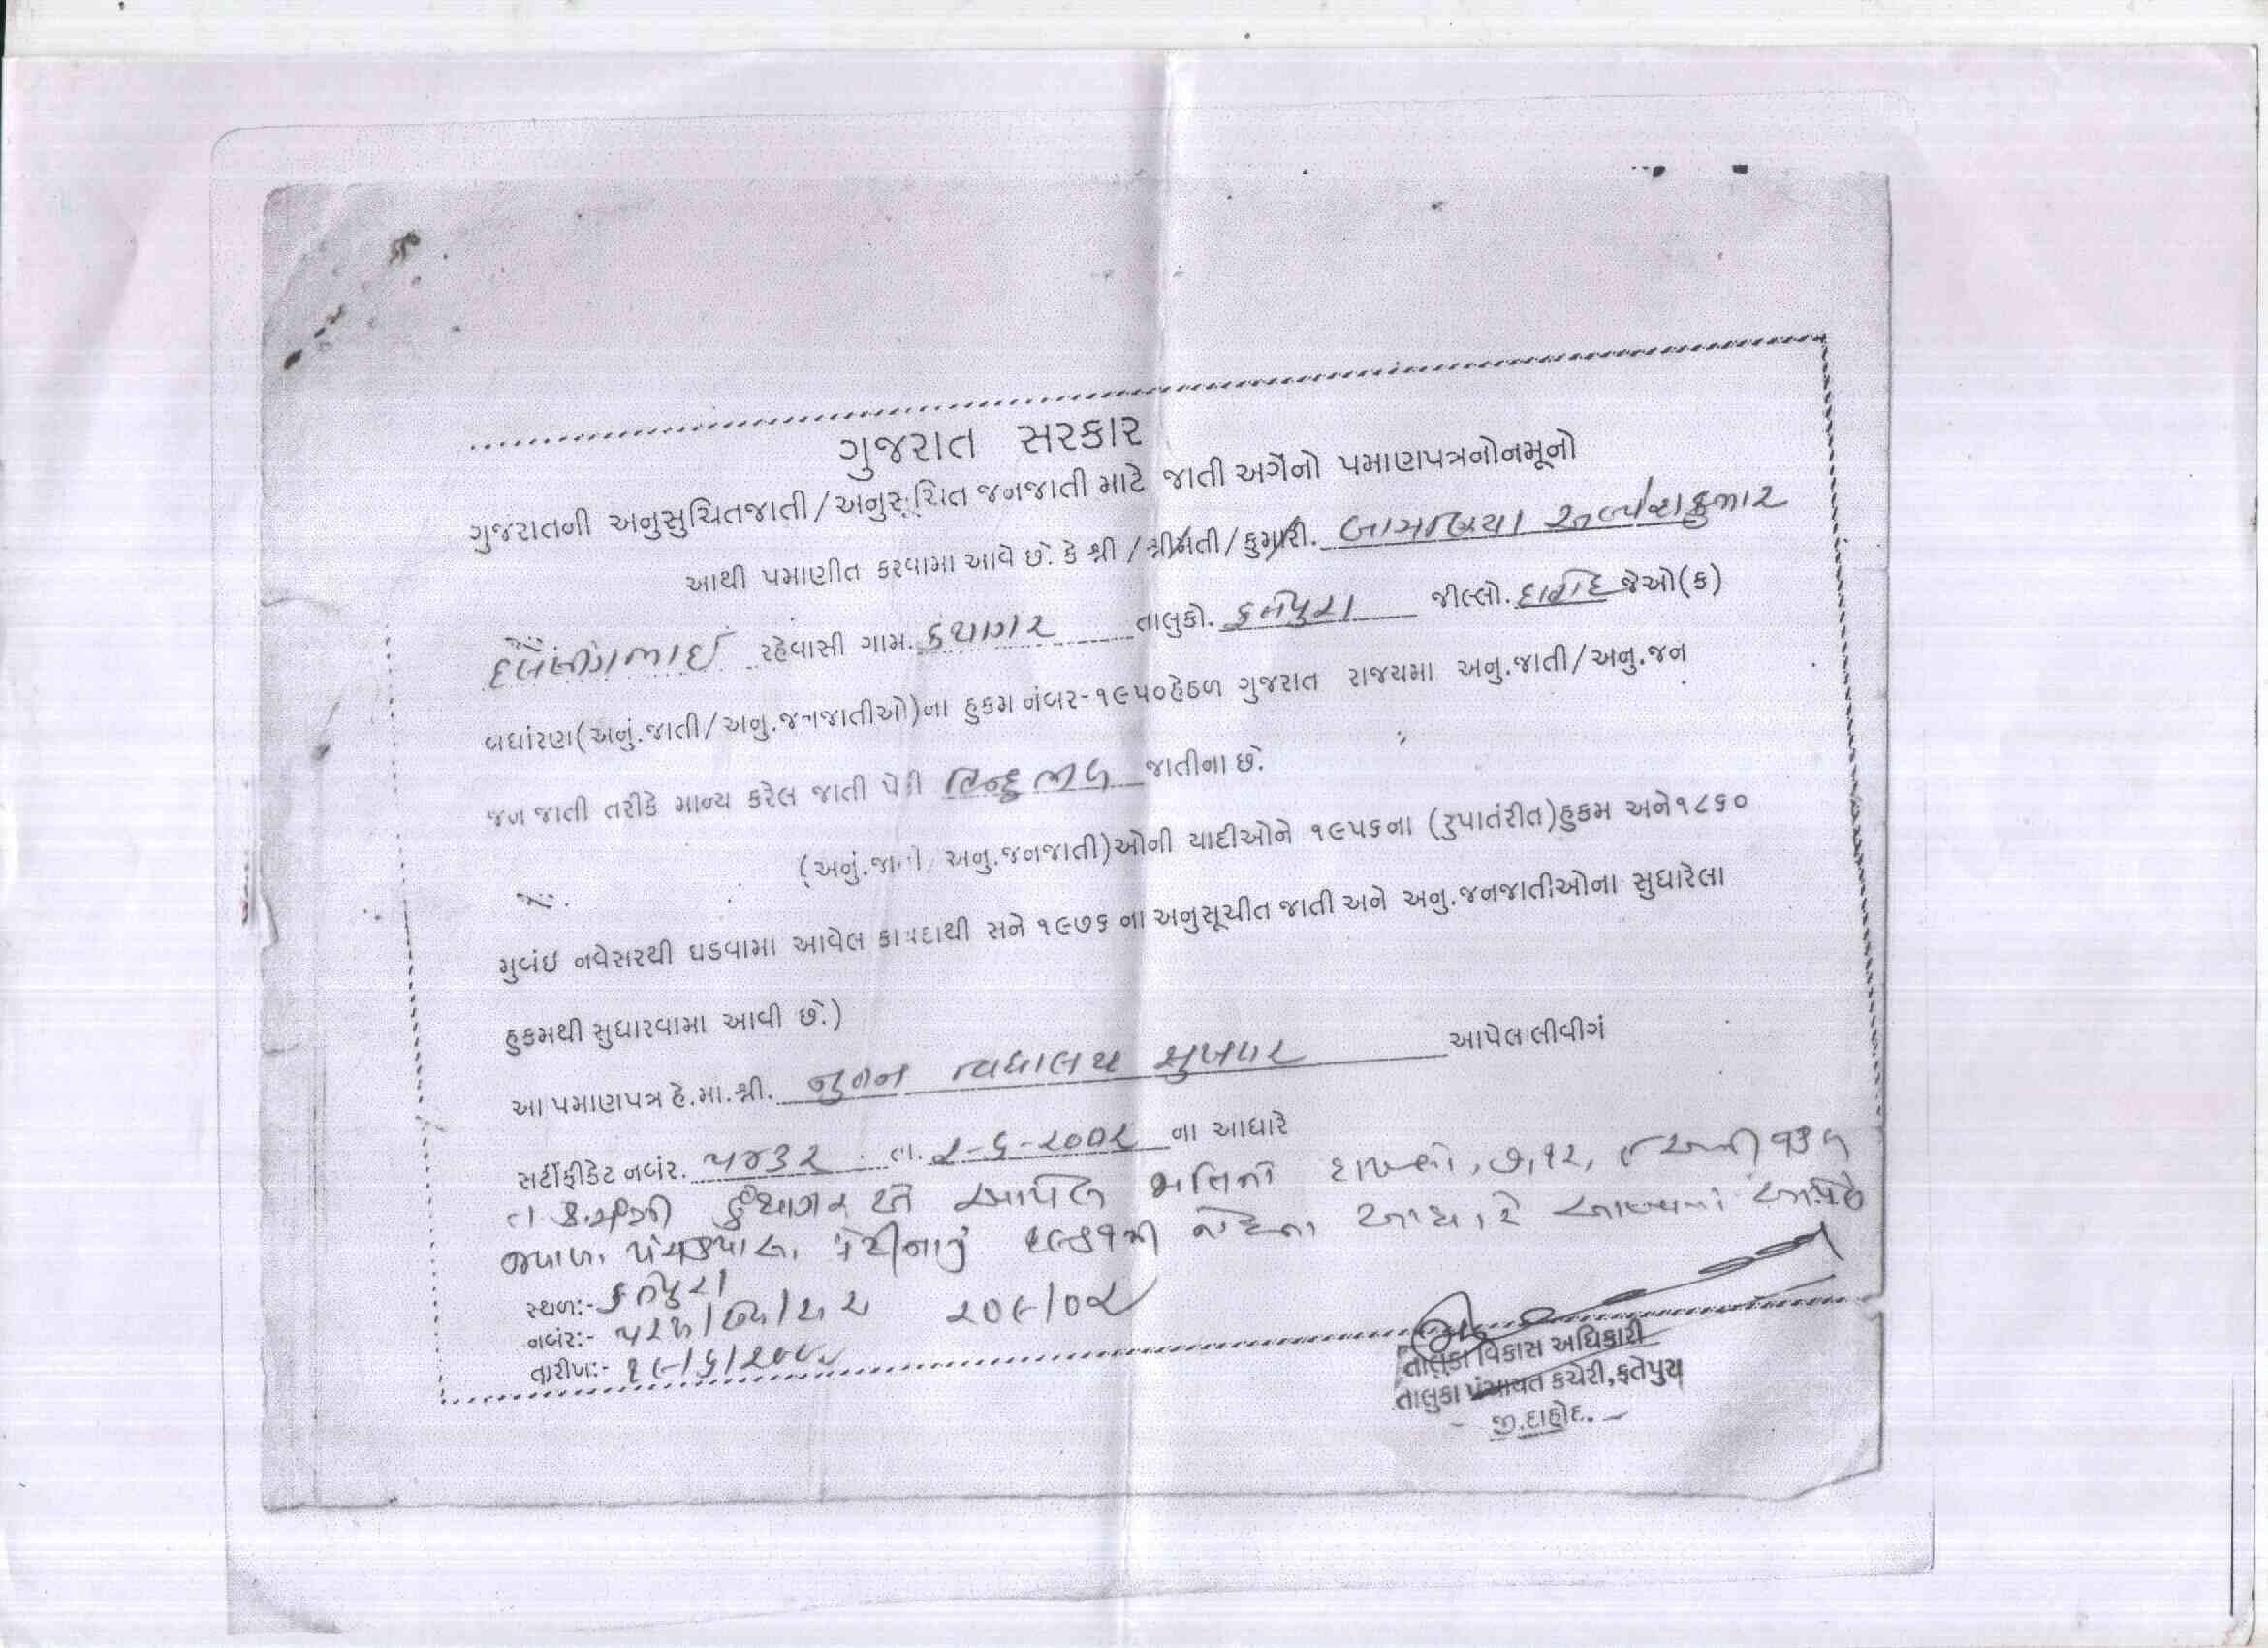 ગુજરાત સરકાર
ગુજરાતની અનુસુચિતજાતી/અનુસૂચિત જનજાતી માટે જાતી અર્ગેનો પમાણપત્રનોનમૂનો
આથી પમાણીત કરવામા આવે છે. કે શ્રી/શ્રીમતી/કુમારી.
રહેવાસી ગામ. કંથાગર તાલુકો. ફતેપુરા જીલ્લો. દાહોદ જેઓ(ક)
બધાંરણ(અનું.જાતી/અનુ.જનજાતીઓ)ના હુકમ નંબર-૧૯૫૦હેઠળ ગુજરાત રાજયમા અનુ.જાતી/અનુ.જન
જન જાતી તરીકે માન્ય કરેલ જાતી પેકી હિન્દુ ભીલ જાતીના છે.
(અનું.જાતી/અનુ.જનજાતી)ઓની યાદીઓને ૧૯૫૬ના (રુપાતંરીત)હુકમ અને૧૮૬૦
મુબંઇ નવેસરથી ઘડવામા આવેલ કાયદાથી સને ૧૯૭૬ ના અનુસૂચીત જાતી અને અનુ.જનજાતીઓના સુધારેલા
હુકમથી સુધારવામા આવી છે.)
આ પમાણપત્ર હે.મા.શ્રી. નુતન વિધાલય સુખસર આપેલ લીવીગં
સર્ટીફીકેટ નબંર. ૫૪૩૨ તા. ૨-૬-૨૦૦૨ ના આધારે
આપેલ જાતિનો દાખલો, ૭,૧૨,
આધારે
સ્થળ:- ફતેપુરા
નબંર:- ૨૦૯/૦૨
તારીખ:- ૧૯/૬/૨૦૦૨
તાલુકા વિકાસ અધિકારી
તાલુકા પંચાયત કચેરી,ફતેપુરા
જી.દાહોદ.